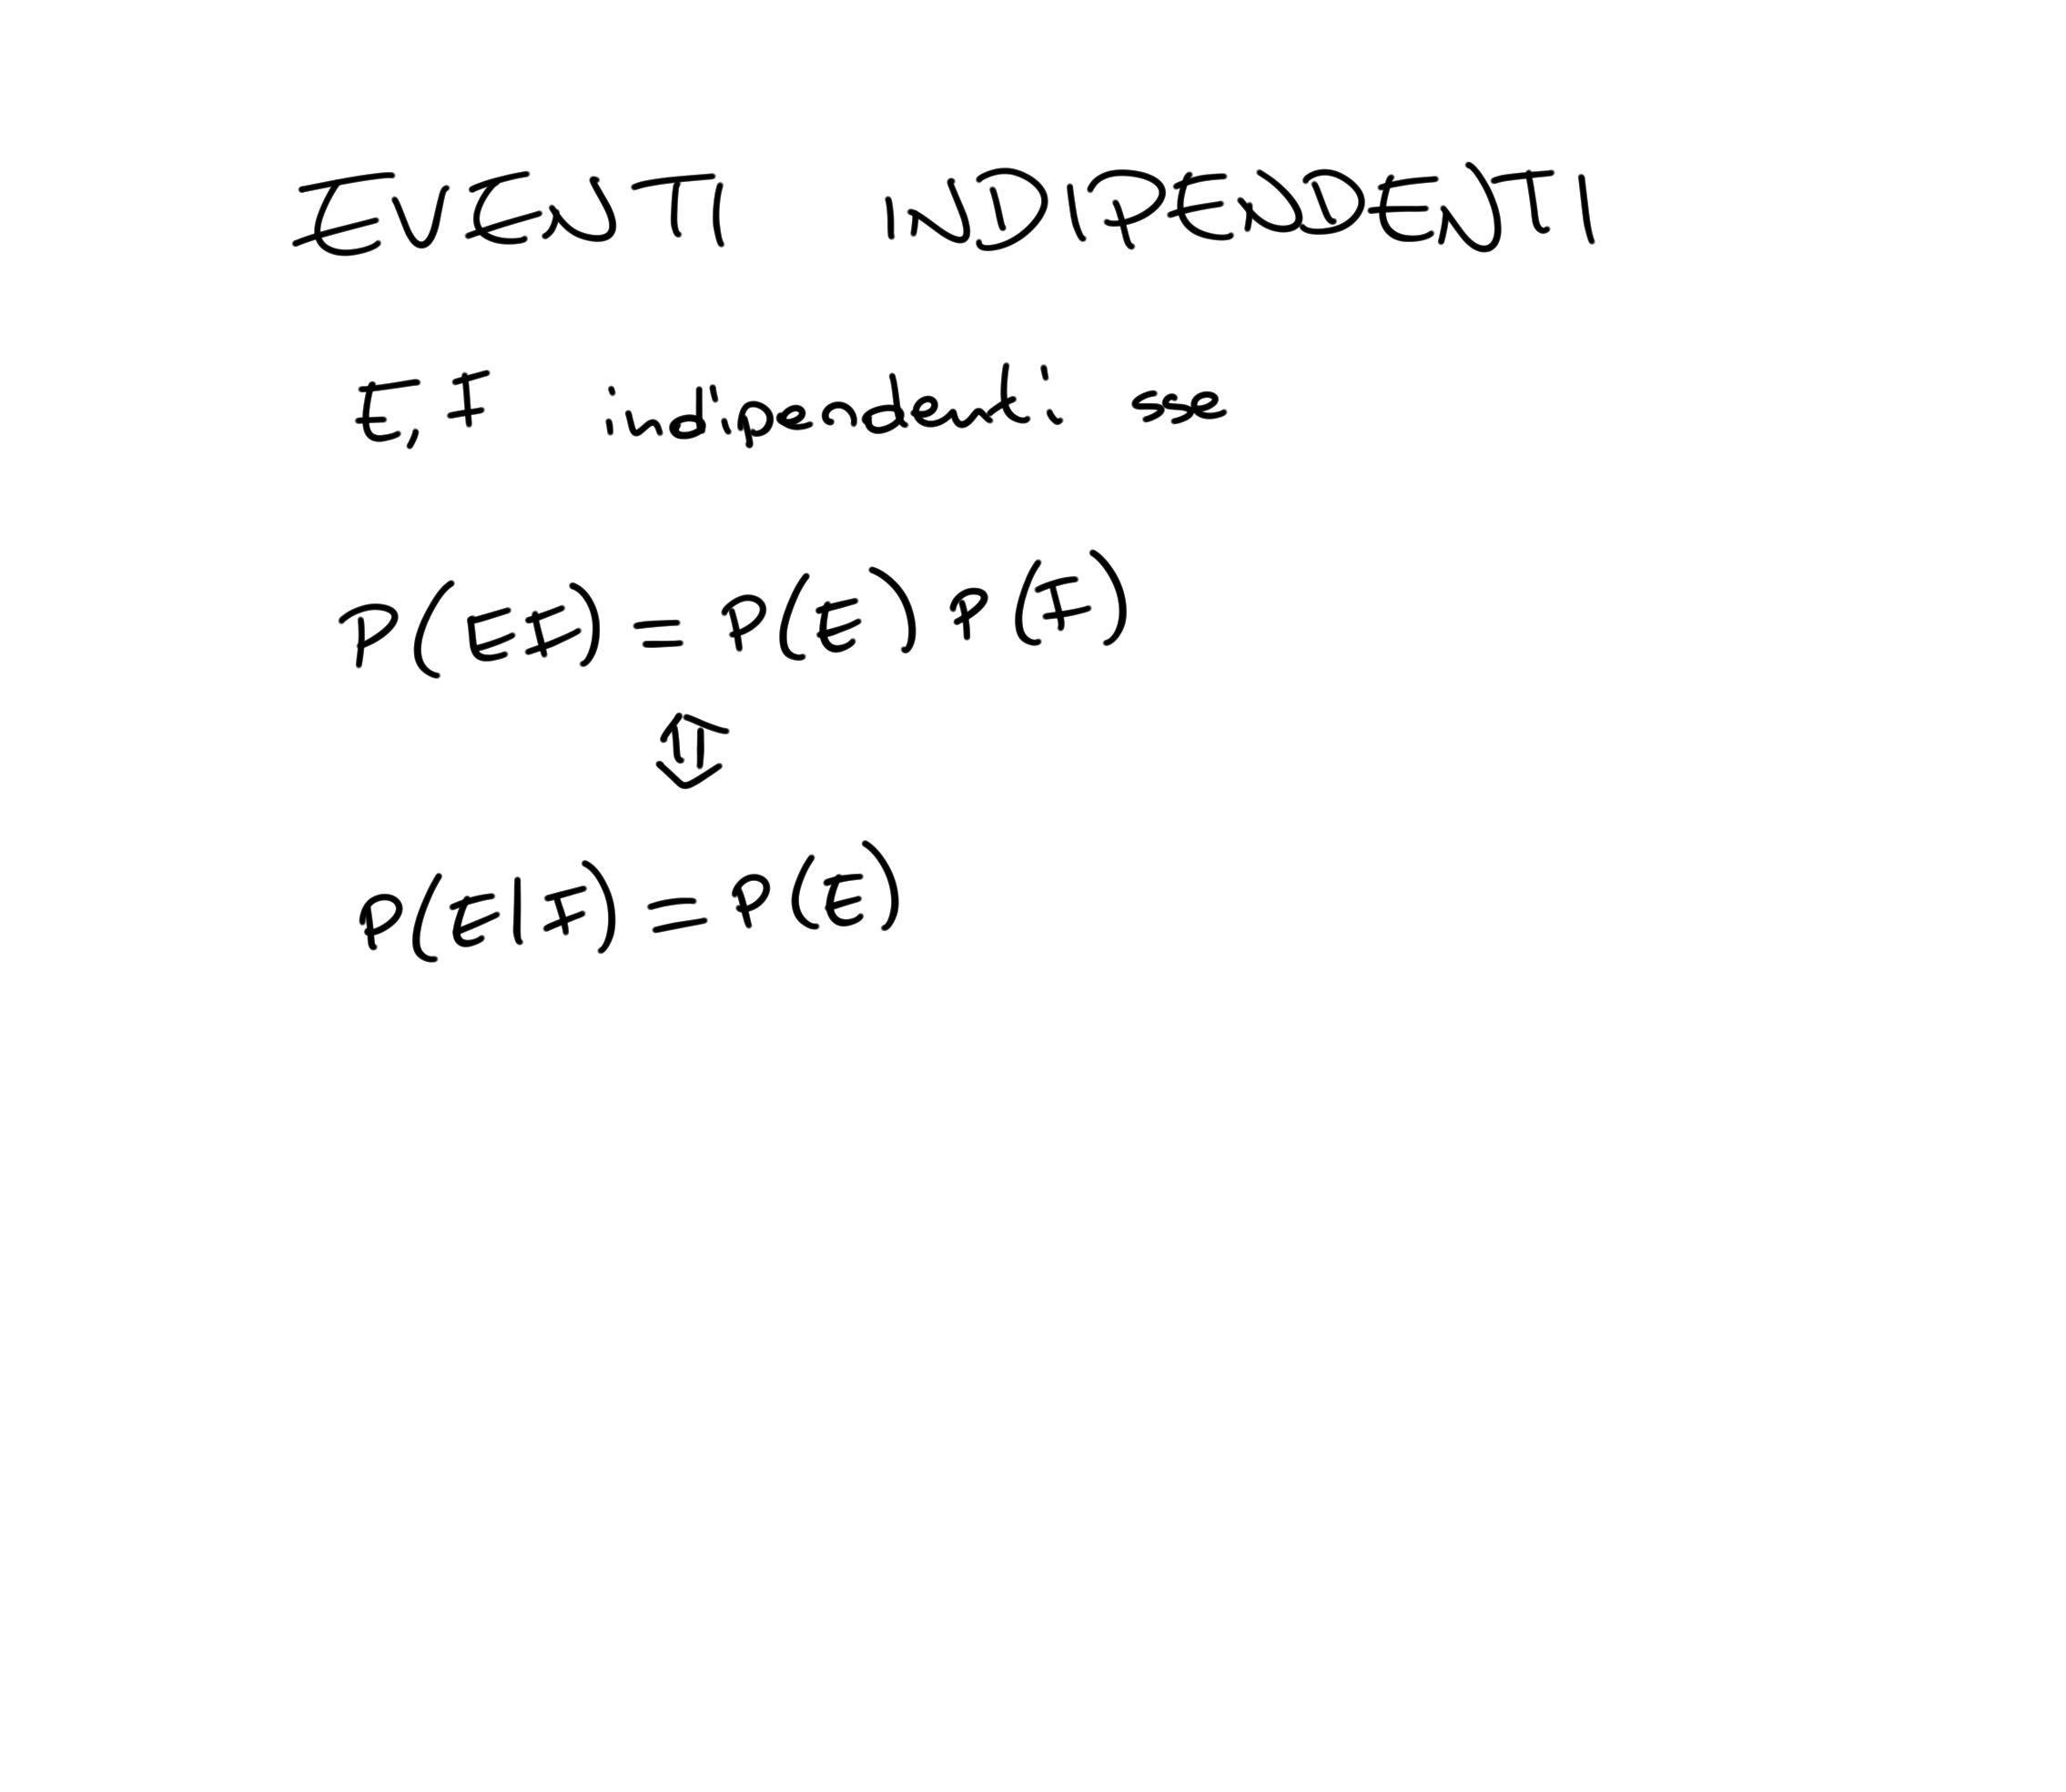 EVENTI INDIPENDENTI
E, F indipendenti sse
P(EF) = P(E) P(F)
⇕
P(E|F) = P(E)